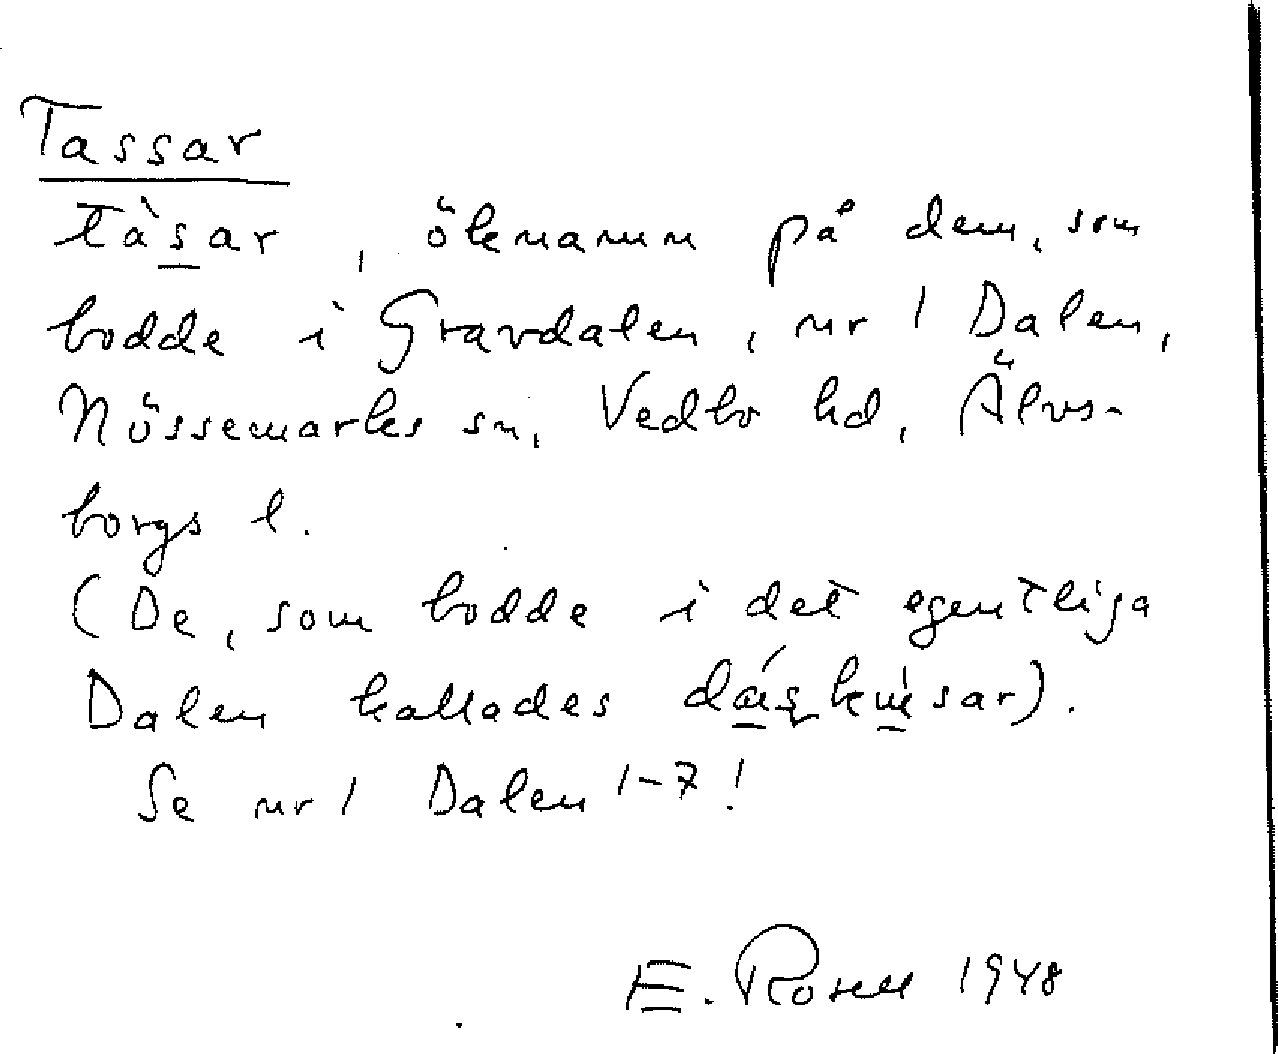 Tassar
tàs̲ar, öknamn på dem, som
bodde i Gravdalen, nr 1 Dalen,
Nössemarks sn, Vedbo hd, Älvs-
borgs l.
(De, som bodde i det egentliga
Dalen kallades
Se nr 1 Dalen 1-7!
E. Rosell 1948